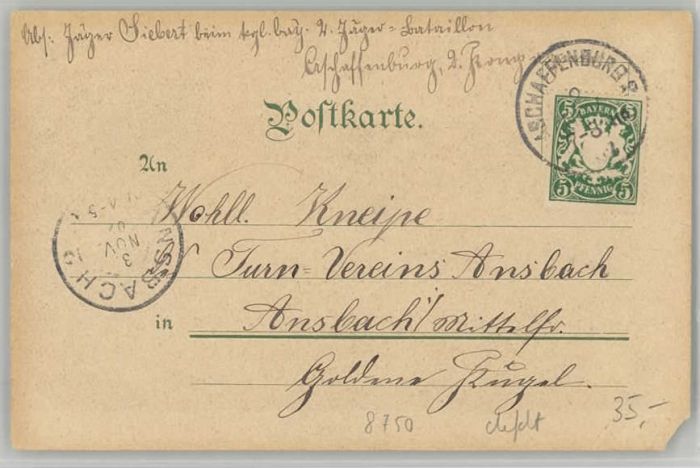 Abs: Jäger Siebert beim kgl. bay. 2. Jäger-Bataillon
Aschaffenburg, 2.
ASCHAFFENBURG 2
Postkarte.
5 BAYERN 5
5 PFENNIG 5
An
Wohll. Kneipe
Turn-Vereins Ansbach
ANSBACH
3 NOV.
in
Ansbach i/ Mittelfr.
Goldene Kugel.
8750
defekt
35,-